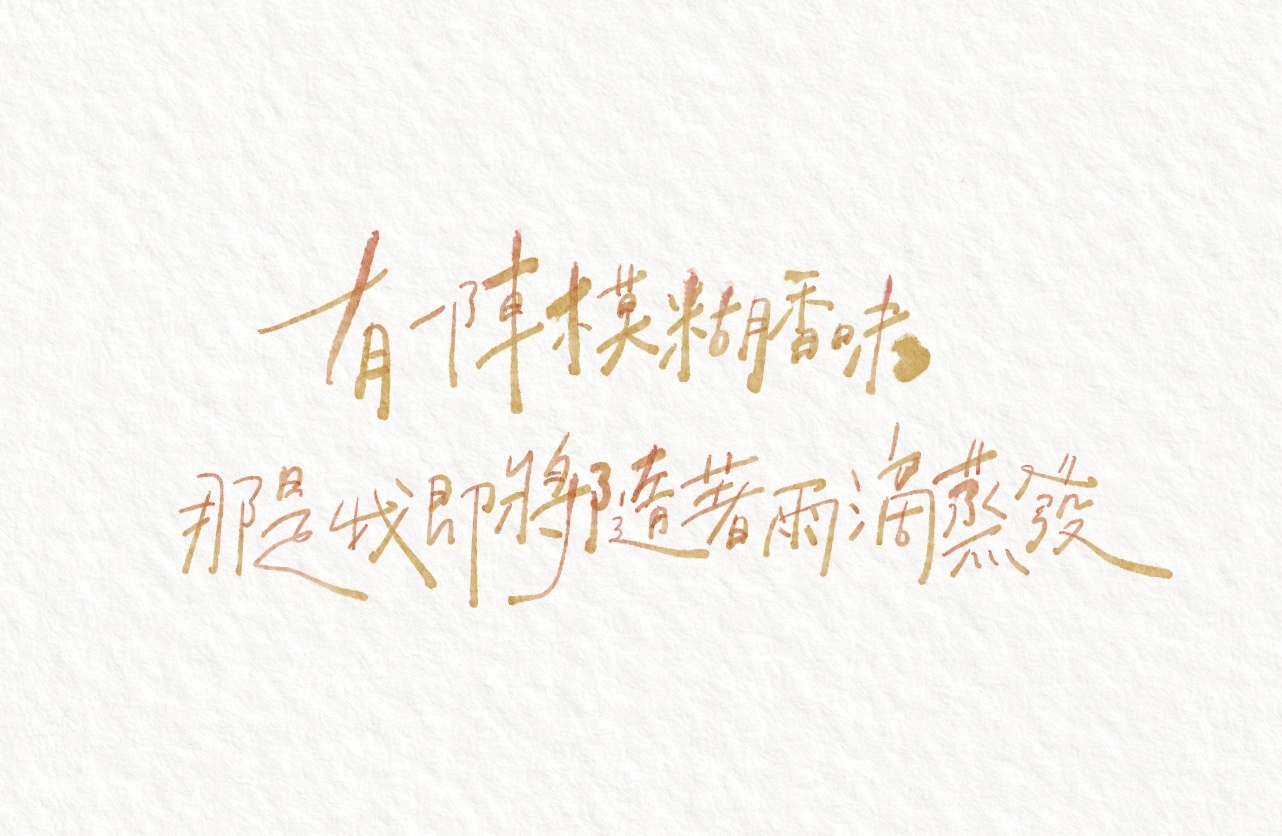 有陣模糊香味
那是我即將隨著雨滴蒸發